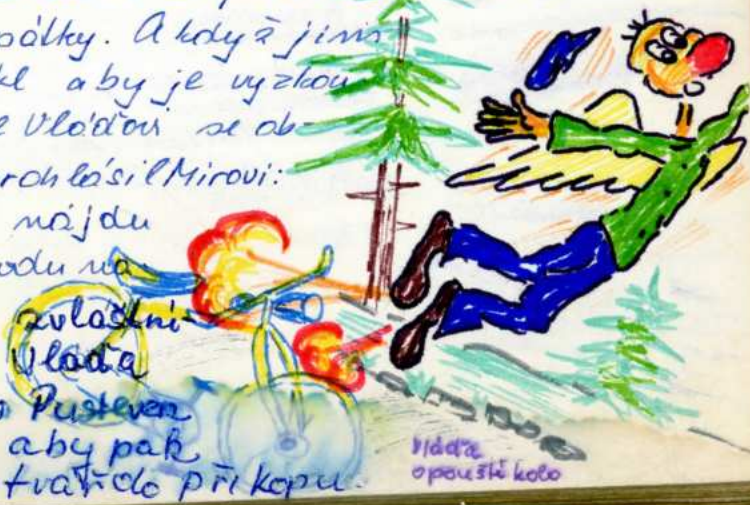 pálky. A když jim
aby je vyzkou
Vláďovi se ob-
rohlásil Mirovi:
nájdu
odu na
zvláštní
Vláďa
Pusteven
aby pak
tvář do příkopu.
Vláďa
opouští kolo